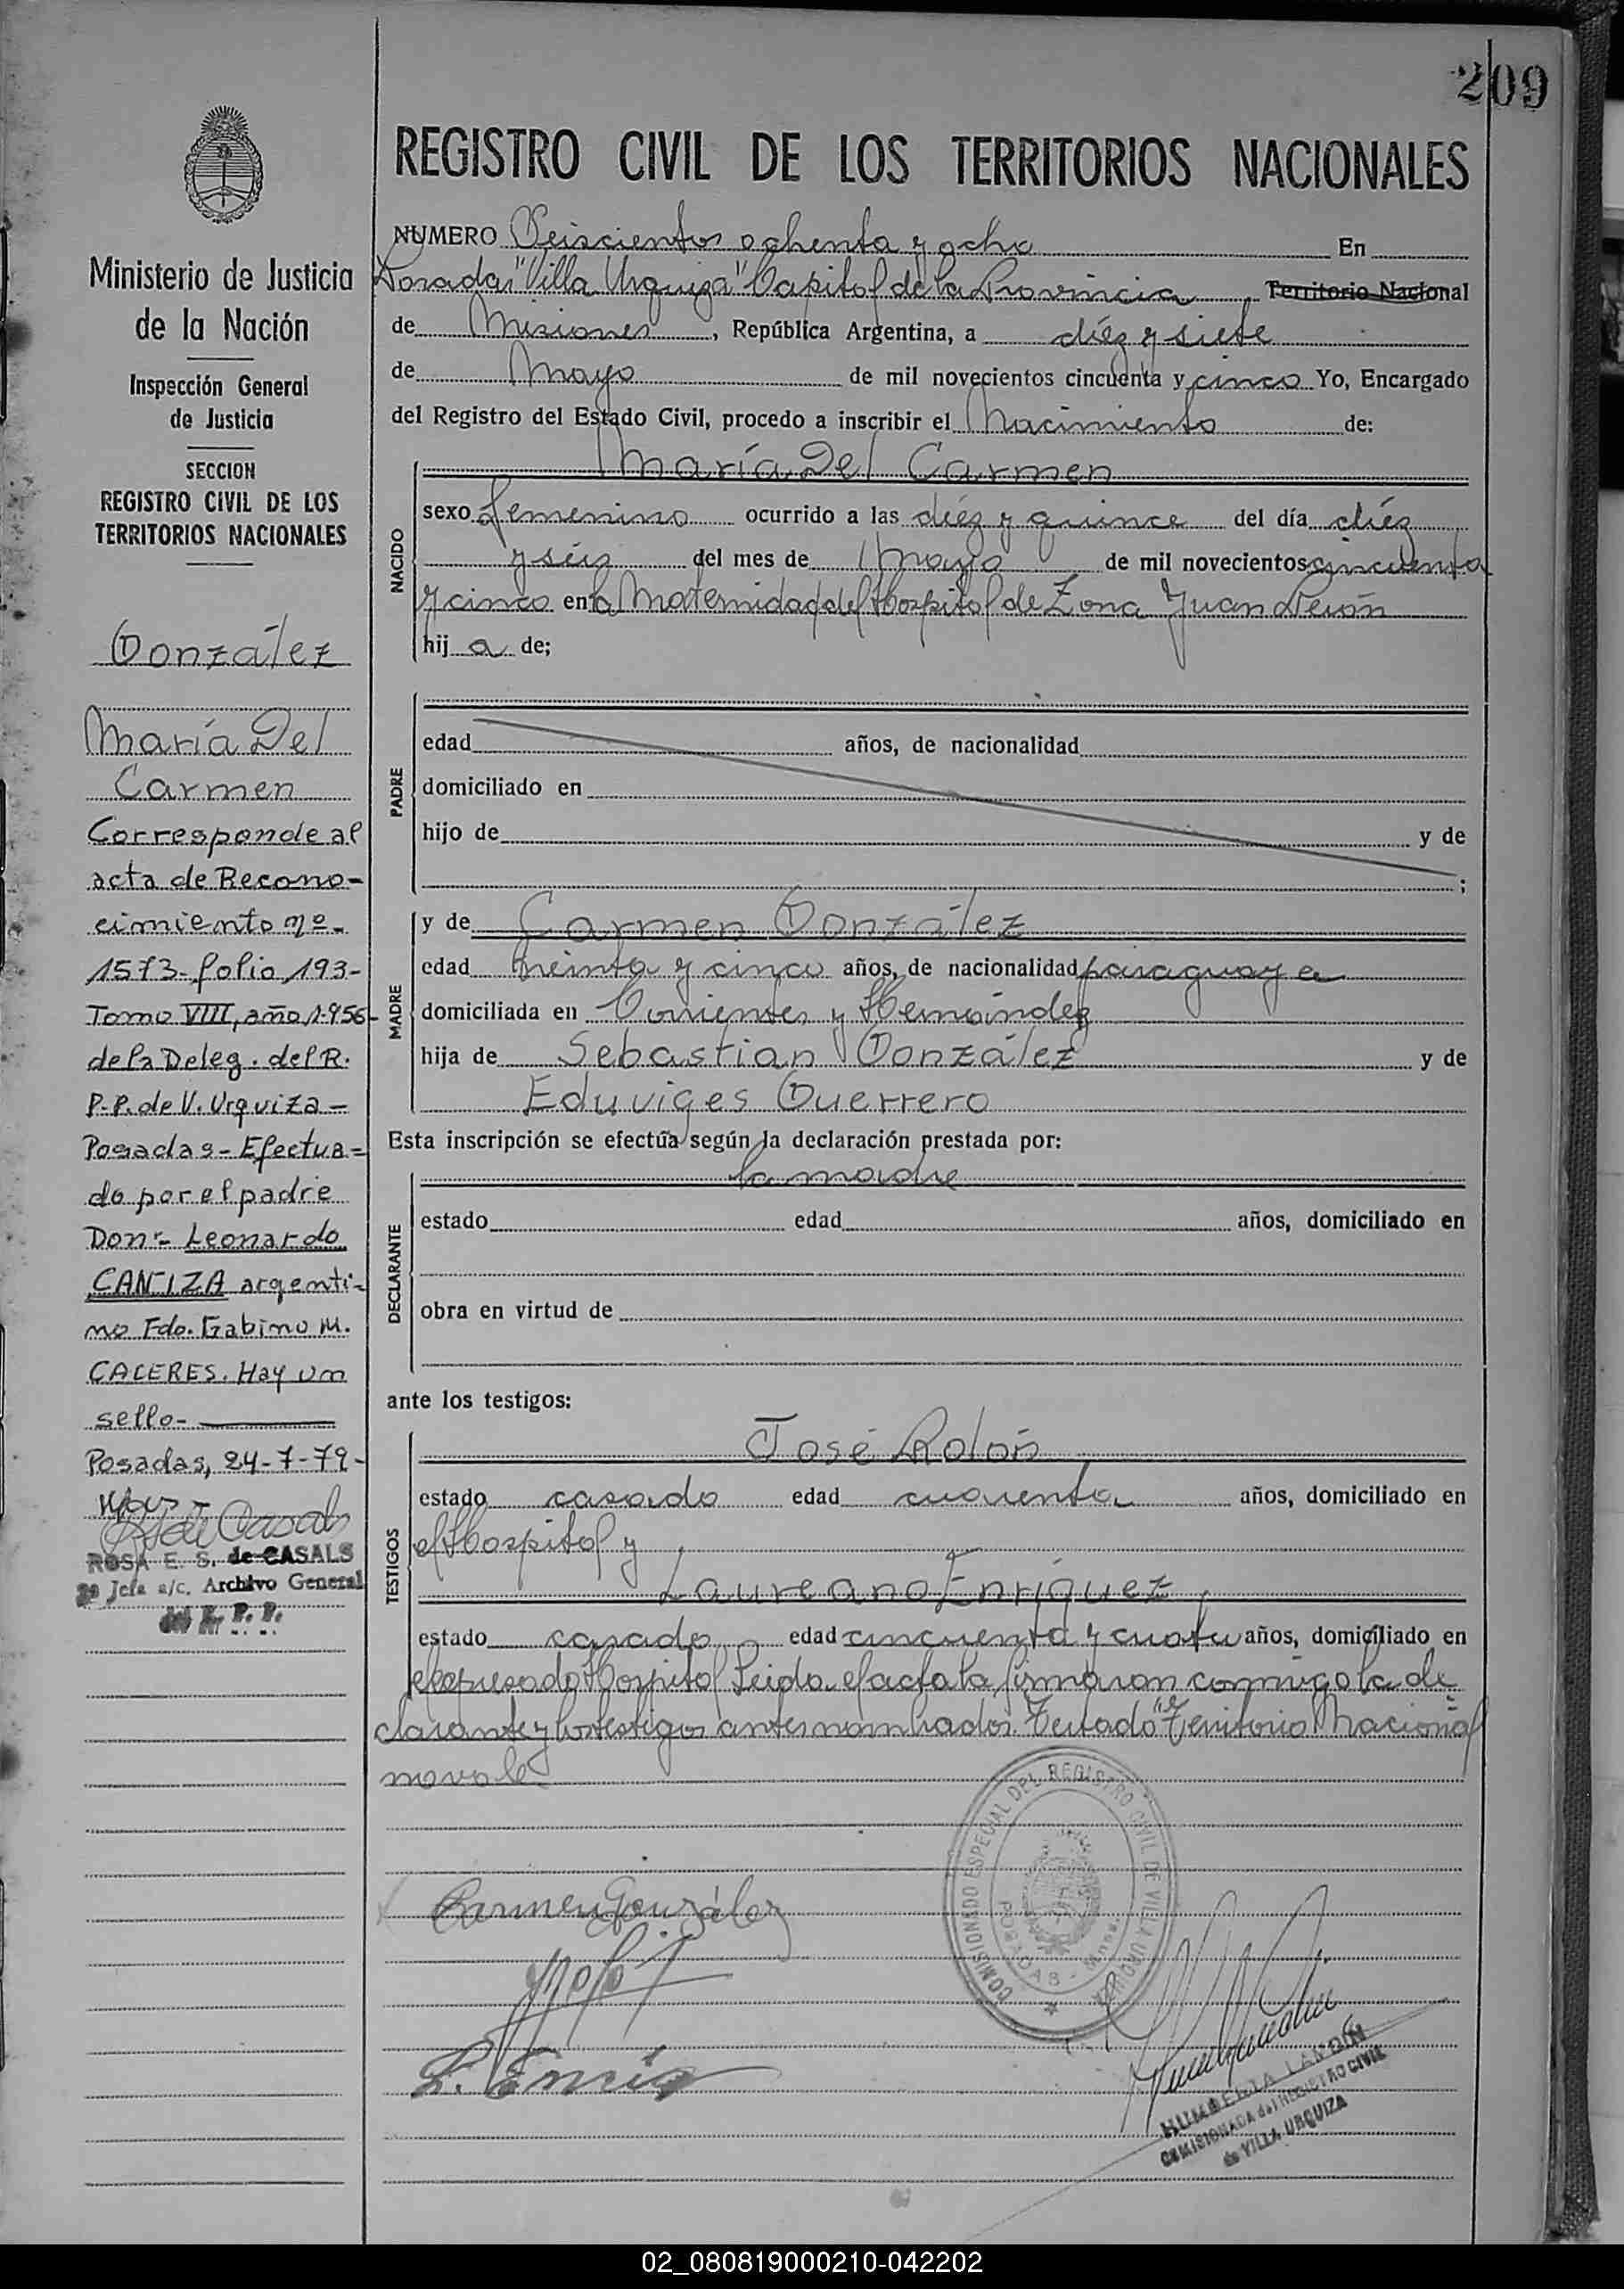 209
REGISTRO CIVIL DE LOS TERRITORIOS NACIONALES
NUMERO Seiscientos ochenta y ocho En
Posadas "Villa Urquiza" Capital de la Provincia Territorio Nacional
de Misiones, República Argentina, a diéz y siete
de Mayo de mil novecientos cincuenta y cinco Yo, Encargado
del Registro del Estado Civil, procedo a inscribir el Nacimiento de:
María Del Carmen
NACIDO
sexo femenino ocurrido a las diéz y quince del día diéz
y séis del mes de Mayo de mil novecientos cincuenta
y cinco en la Maternidad del Hospital de Zona Juan Perón
hij a de;
PADRE
edad años, de nacionalidad
domiciliado en
hijo de y de
;
MADRE
y de Carmen González
edad treinta y cinco años, de nacionalidad paraguaya
domiciliada en Corrientes y Hernández
hija de Sebastian González y de
Eduviges Guerrero
Esta inscripción se efectúa según la declaración prestada por:
la madre
DECLARANTE
estado edad años, domiciliado en
obra en virtud de
ante los testigos:
TESTIGOS
José Rolón
estado casado edad cuarenta años, domiciliado en
el Hospital y
Laureano Enríquez,
estado casado edad cincuenta y cuatro años, domiciliado en
el expresado Hospital Leida el acta la firmaron conmigo la de
clarante y los testigos antes nombrados. Testado "Territorio Nacional
no vale
Carmen González
COMISIONADO ESPECIAL DEL REGISTRO CIVIL DE VILLA URQUIZA
POSADAS - Mnes.
COMISIONADA del REGISTRO CIVIL
de VILLA URQUIZA
Ministerio de Justicia
de la Nación
Inspección General
de Justicia
SECCION
REGISTRO CIVIL DE LOS
TERRITORIOS NACIONALES
González
María Del
Carmen
Corresponde al
acta de Recono-
cimiento nº-
1573-folio 193-
Tomo VIII, año 1956-
de la Deleg. del R.
P.P. de V. Urquiza-
Posadas-Efectua-
do por el padre
Don:- Leonardo
CANIZA argenti-
no Fdo. Gabino M.
CACERES. Hay un
sello-
Posadas, 24-7-79-
ROSA E. S. de CASALS
2º Jefa a/c. Archivo General
del R. P. P.
02_080819000210-042202